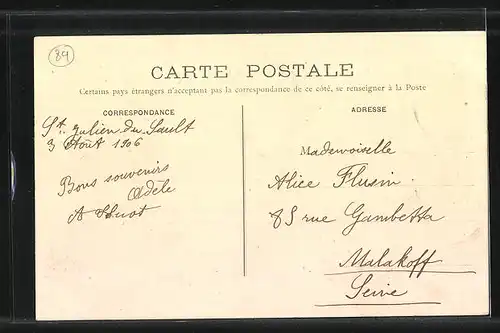 89
CARTE POSTALE
Certains pays étrangers n'acceptant pas la correspondance de ce côté, se renseigner à la Poste
CORRESPONDANCE
St. Julien du Sault
3 Août 1906
Bons souvenirs
Adèle
A
ADRESSE
Mademoiselle
Alice Flusin
85 rue Gambetta
Malakoff
Seine